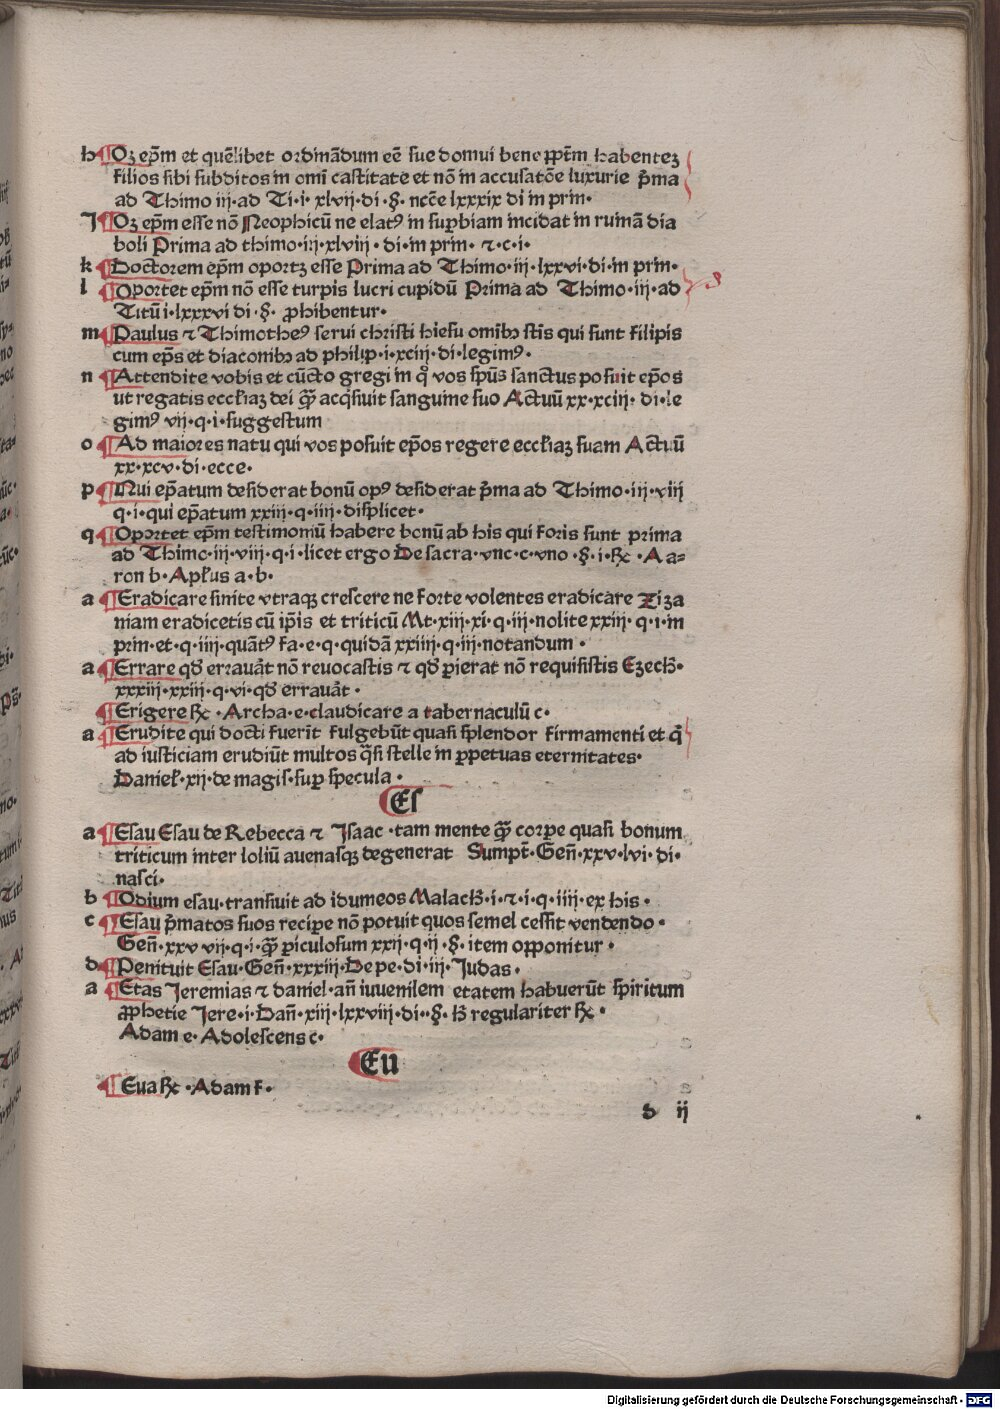 h ¶Oꝫ ep̄m et quēlibet ordinādum eē sue domui bene p̱ptm̄ habentez
filios sibi subditos in om̄i castitate et nō in accusatōe luxurie p̄ma
ad Thimo iij·ad Ti·i· xlvij·di·§· nc̄ce lxxxix di in prin·
J ¶Oꝫ ep̄m esse nō Neophicū ne elatꝰ in suꝑbiam incidat in ruinā dia
boli Prima ad thimo·iij·xlviij·di·in prin· ⁊·c·i·
k ¶Doctorem ep̄m oportꝫ esse Prima ad Thimo·iij·lxxvi·di·in prin·
l ¶Oportet ep̄m nō esse turpis lucri cupidū Prima ad Thimo·iij·ad
Titū i·lxxxvi di·§· ꝓhibentur·
m ¶Paulus ⁊ Thimotheꝰ serui christi hiesu omībꝫ sctīs qui sunt filipis
cum ep̄s et diaconibꝫ ad philip·i·xciij·di·legimꝰ·
n ¶Attendite vobis et cūcto gregi in q̊ vos sp̄us sanctus posuit ep̄os
ut regatis eccl̄iaꝫ dei quā acq̇siuit sanguine suo Actuū xx·xciij·di·le
gimꝰ vij·q·i·suggestum
o ¶Ad maiores natu qui vos posuit ep̄os regere eccl̄iaꝫ suam Actuū
xx·xcv·di·ecce·
p ¶Nui ep̄atum desiderat bonū opꝰ desiderat p̄ma ad Thimo·iij·viij
q·i·qui ep̄atum xxiij·q·iiij·displicet·
q ¶Oportet ep̄m testimoniū habere bonū ab his qui foris sunt prima
ad Thimo·iij·viij·q·i·licet ergo De sacra·vnc·c·vno·§·i·R̄c·Aa⸗
ron b·Apl̄us a·b·
a ¶Eradicare sinite vtraqꝫ crescere ne forte volentes eradicare Ziza
niam eradicetis cū ip̄is et triticū Mt·xiij·xi·q·iij·nolite xxiij·q·i·in
prin·et·q·iiij·quātꝰ fa·e·q·quidā xxiiij·q·iij·notandum·
a ¶Errare qd̄ errauāt nō reuocastis ⁊ qd̄ ꝑierat nō requisistis Ezech̄·
xxxiij·xxiij·q·vi·qd̄ errauāt·
¶Erigere R̄c·Archa·e·claudicare a tabernaculū c·
a ¶Erudite qui docti fuerīt fulgebūt quasi splendor firmamenti et q̄
ad iusticiam erudiūt multos q̄si stelle in ꝑpetuas eternitates·
Daniel̄·xij·de magis·suꝑ specula·
¶Es
a ¶Esau Esau de Rebecca ⁊ Isaac·tam mente quā corꝑe quasi bonum
triticum inter loliū auenasqꝫ degenerat Sumpt̄·Gen̄·xxv·lvi·di·
nasci·
b ¶Odium esau·transiuit ad idumeos Malach̄·i·⁊·i·q·iiij·ex his·
c ¶Esau p̄matos suos reciꝑe nō potuit quos semel cessit vendendo·
Gen̄·xxv vij·q·i·quā ꝑiculosum xxij·q·ij·§·item opponitur·
d ¶Penituit Esau·Gen̄·xxxiij·De pe·di·iij·Judas·
a ¶Etas Jeremias ⁊ daniel·an̄ iuuenilem etatem habuerūt spiritum
ꝓphetie Jere·i·Dan̄·xiij·lxxviij·di··§·h̄ regulariter R̄c·
Adam e·Adolescens c·
¶Eu
¶Eua R̄c·Adam f·
d ij
Digitalisierung gefördert durch die Deutsche Forschungsgemeinschaft · DFG